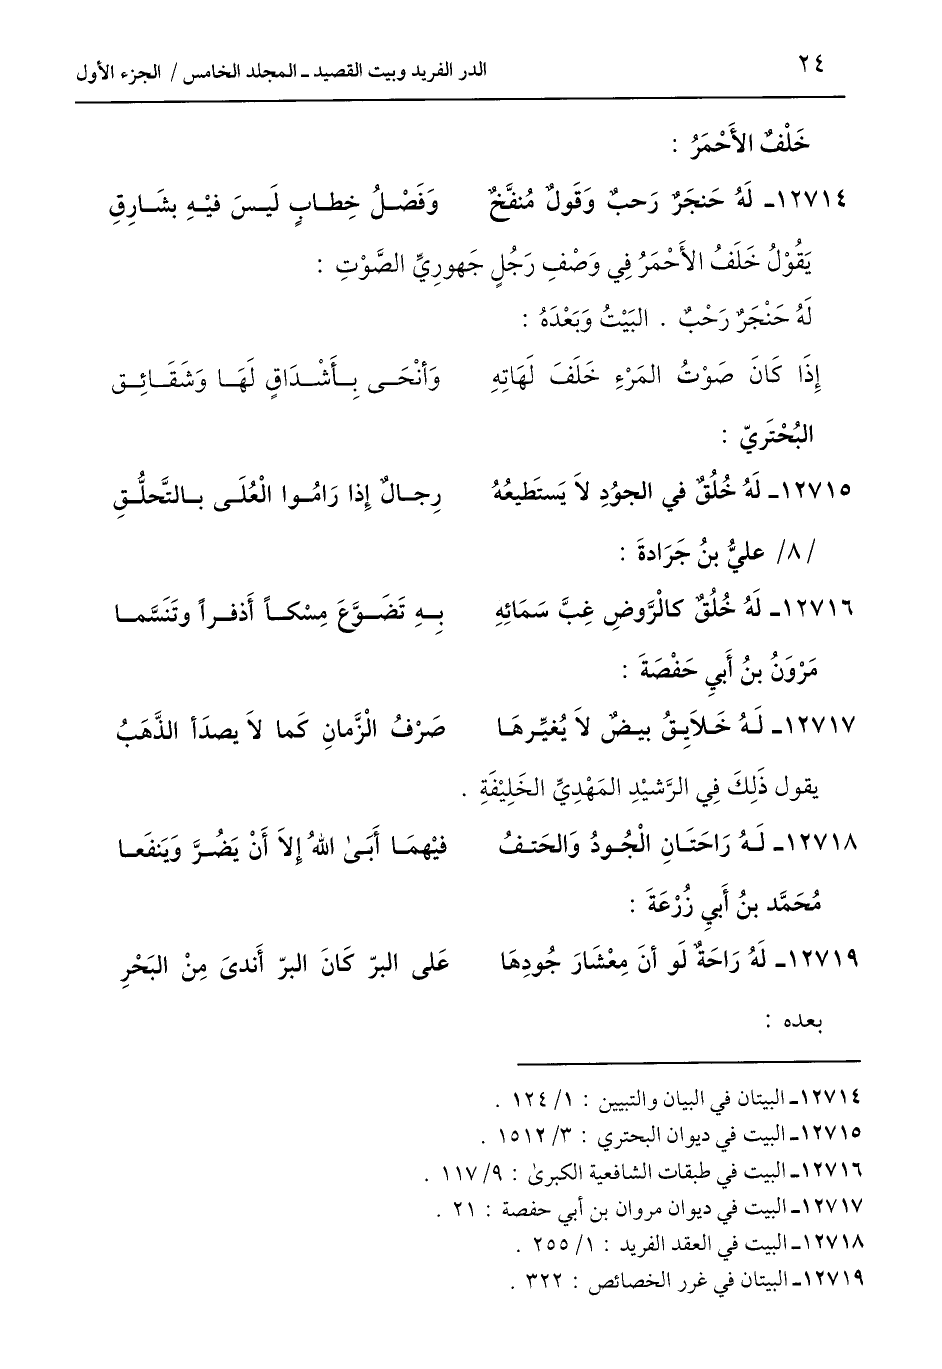 ٢٤ الدر الفريد وبيت القصيد ـ المجلد الخامس / الجزء الأول
خَلْفُ الأَحْمَرُ :
١٢٧١٤ـ لَهُ حَنجَرٌ رَحبٌ وَقَولٌ مُنفَّخٌ وَفَصْلُ خِطابٍ لَيسَ فيْهِ بشَارِقِ
يَقُوْلُ خَلَفُ الأَحْمَرُ فِي وَصْفِ رَجُلٍ جَهورِيِّ الصَّوْتِ :
لَهُ حَنْجَرٌ رَحْبٌ . البَيْتُ وَبَعْدَهُ :
إِذَا كَانَ صَوْتُ المَرْءِ خَلفَ لَهَاتِهِ وَأنْحَى بِأَشْدَاقٍ لَهَا وَشَقَائِق
البُحْتَرِيّ :
١٢٧١٥ـ لَهُ خُلُقٌ في الجوُدِ لاَ يَستَطيعُهُ رِجالٌ إِذا رَامُوا الْعُلَى بالتَّحلُّقِ
/٨/ عليُّ بنُ جَرَادةَ :
١٢٧١٦ـ لَهُ خُلُقٌ كالرَّوضِ غِبَّ سَمَائِهِ بِهِ تَضَوَّعَ مِسْكاً أَذفراً وتَنَسَّما
مَرْوَنُ بنُ أَبيِ حَفْصَةَ :
١٢٧١٧ـ لَهُ خَلاَيِقُ بيضٌ لاَ يُغيِّرهَا صَرْفُ الزَّمانِ كَما لاَ يصدَأ الذَّهَبُ
يقول ذَلِكَ فِي الرَّشيْدِ المَهْدِيِّ الخَلِيْفَةِ .
١٢٧١٨ـ لَهُ رَاحَتَانِ الْجُودُ وَالحَتفُ فيْهمَا أَبَىٰ اللهُ إلاَ أَنْ يَضُرَّ وَيَنفَعا
مُحَمَّد بنُ أَبيِ زُرْعَةَ :
١٢٧١٩ـ لَهُ رَاحَةٌ لَو أنَ مِعْشَارَ جُودِهَا عَلى البرّ كَانَ البرّ أَندىَ مِنْ البَحْرِ
بعده :
١٢٧١٤ـ البيتان في البيان والتبيين : ١/ ١٢٤ .
١٢٧١٥ـ البيت في ديوان البحتري : ٣/ ١٥١٢ .
١٢٧١٦ـ البيت في طبقات الشافعية الكبرىٰ : ٩/ ١١٧ .
١٢٧١٧ـ البيت في ديوان مروان بن أبي حفصة : ٢١ .
١٢٧١٨ـ البيت في العقد الفريد : ١/ ٢٥٥ .
١٢٧١٩ـ البيتان في غرر الخصائص : ٣٢٢ .